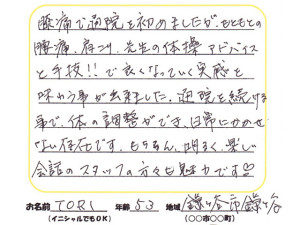 腰痛で通院を初めましたが、もともとの
腰痛、肩コリ、先生の体操アドバイス
と手技!!で良くなっていく実感を
味わう事が出来ました。通院を続ける
事で、体の調整ができ、日常にかかせ
ない存在です。もちろん、明るく、楽しい
会話のスタッフの方々も魅力です♡
お名前 TORI 年齢 53 地域 鎌ヶ谷市鎌ヶ谷
(イニシャルでもOK) (〇〇市〇〇町)